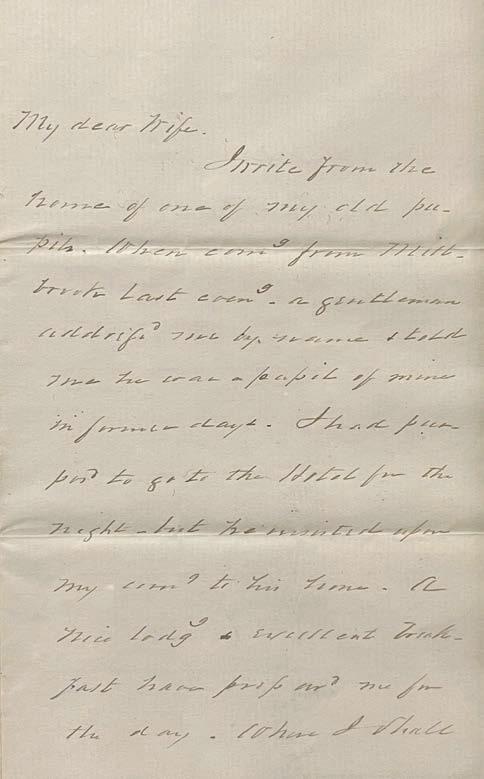 My dear Wife.
I write from the
home of one of my old pu-
pils. When comg from Mill-
brook last eveng - a gentleman
addressd me by name & told
me he was a pupil of mine
in former days. I had pur-
posd to go to the Hotel for the
night - but he insisted upon
my comg to his home. A
nice lodgg & excellent break-
fast have prepard me for
the day. Where I shall